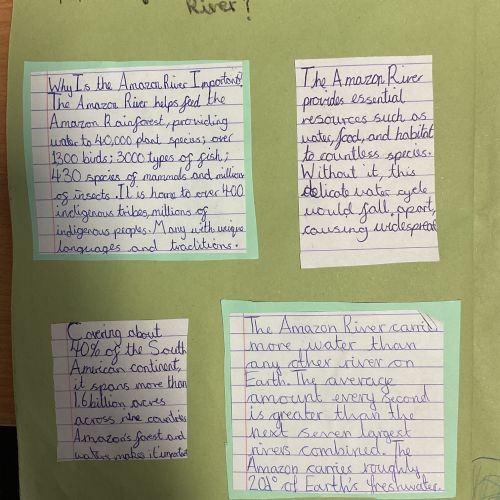 River?
Why Is the Amazon River Important?
The Amazon River helps feed the
Amazon Rainforest, providing
water to 40,000 plant species; over
1300 birds; 3000 types of fish;
430 species of mammals and millions
of insects. It is home to over 400
indigenous tribes, millions of
indigenous peoples. Many with unique
languages and traditions.
The Amazon River
provides essential
resources such as
water, food, and habitat
to countless species.
Without it, this
delicate water cycle
would fall, apart,
causing widespread
Covering about
40% of the South
American continent,
it spans more than
1.6 billion acres
across nine countries
Amazon's forest and
waters makes it
The Amazon River
more water than
any other river on
Earth. The average
amount every second
is greater than the
next seven largest
rivers combined. The
Amazon carries roughly
20% of Earth's freshwater.